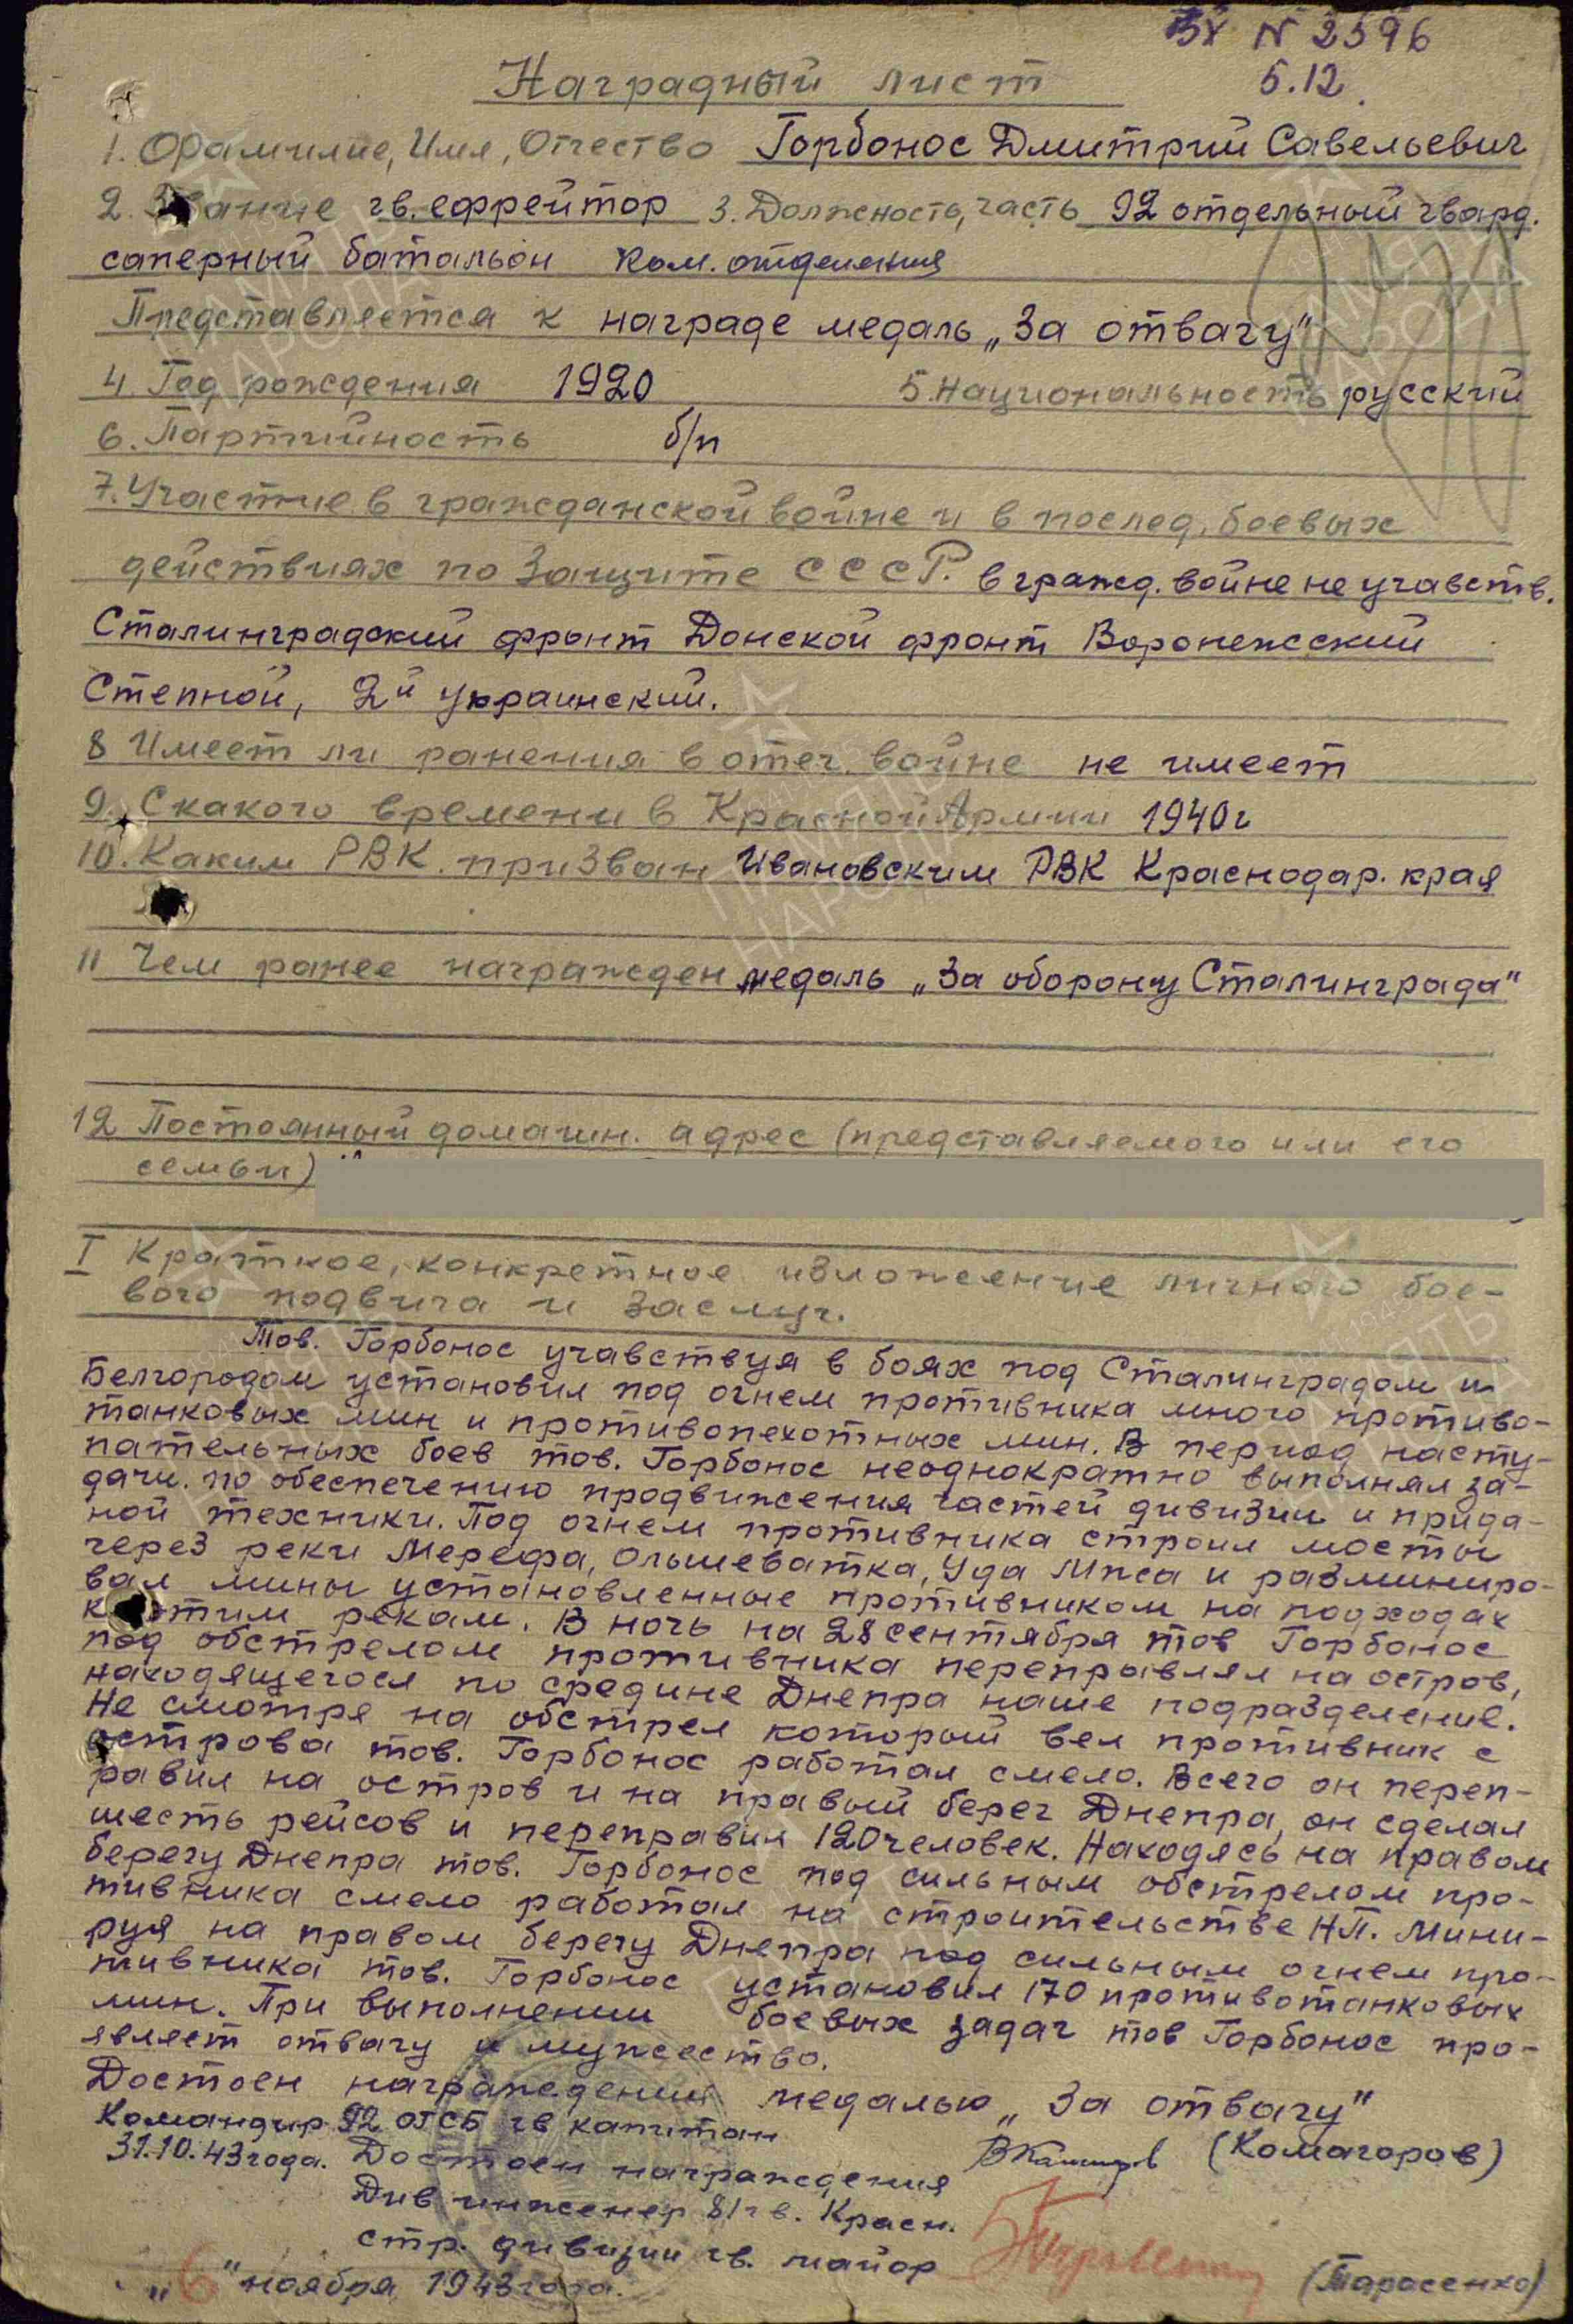 Вх N 2596
5.12.
Наградный лист
1. Фамилие, Имя, Отчество Горбонос Дмитрий Савельевич
2. Звание гв. ефрейтор 3. Должность, часть 92 отдельный гвард.
саперный батальон ком. отделения
Представляется к награде медаль „За отвагу"
4. Год рождения 1920 5. Национальность русский
6. Партийность б/п
7. Участие в гражданской войне и в послед. боевых
действиях по защите СССР. в гражд. войне не учавств.
Сталинградский фронт Донской фронт Воронежсский
Степной, 2й украинский.
8 Имеет ли ранения в отеч. войне не имеет
9. С какого времени в Красной Армии 1940г
10. Каким РВК призван Ивановским РВК Краснодар. края
11 Чем ранее награжден медаль „За оборону Сталинграда"
12 Постоянный домашн. адрес (представляемого или его
семьи)
I Краткое, конкретное изложение личного бое-
вого подвига и заслуг.
Тов. Горбонос учавствуя в боях под Сталинградом и
Белгородом установил под огнем противника много противо-
танковых мин и противопехотных мин. В период насту-
пательных боев тов. Горбонос неоднократно выполнял за-
дачи по обеспечению продвижения частей дивизии и прида-
ной техники. Под огнем противника строил мосты
через реки Мерефа, Ольшеватка, Уда Мжа и разминиро-
вал мины установленные противником на подходах
к этим рекам. В ночь на 28 сентября тов Горбонос
под обстрелом противника переправлял на остров,
находящегося по средине Днепра наше подразделение.
Не смотря на обстрел который вел противник с
острова тов. Горбонос работал смело. Всего он переп-
равил на остров и на правый берег Днепра, он сделал
шесть рейсов и переправил 120 человек. Находясь на правом
берегу Днепра тов. Горбонос под сильным обстрелом про-
тивника смело работал на строительстве НП. Мини-
руя на правом берегу Днепра под сильным огнем про-
тивника тов. Горбонос установил 170 противотанковых
мин. При выполнении боевых задач тов Горбонос про-
являет отвагу и мужество.
Достоен награждения медалью „За отвагу"
Командир 92 ОГСБ гв капитан
(Комагоров)
31.10.43 года. Достоен награждения
Див инженер 81 гв. Красн.
стр. дивизии гв. майор (Тарасенко)
„6" ноября 1943 года.
ПАМЯТЬ НАРОДА